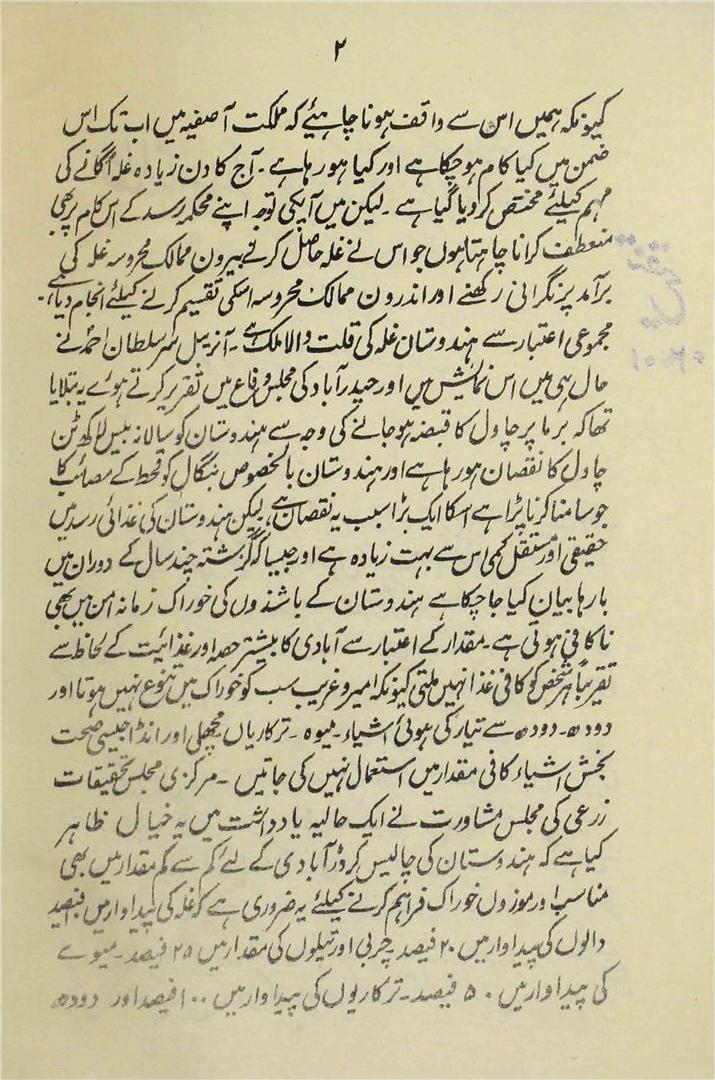 ۲
کیونکہ ہمیں اس سے واقف ہونا چاہیئے کہ مملکت آصفیہ میں اب تک اس
ضمن میں کیا کام ہوچکا ہے اور کیا ہو رہا ہے ۔ آج کا دن زیادہ غلہ اگانے کی
مہم کیلئے مختص کردیا گیا ہے ۔ لیکن میں آپکی توجہ اپنے محکمہ رسد کے اس کام پر بھی
منعطف کرانا چاہتا ہوں جو اس نے غلہ حاصل کرنے بیرون ممالک محروسہ غلہ کی
برآمد پر نگرانی رکھنے اور اندرون ممالک محروسہ اسکی تقسیم کرنے کیلئے انجام دیا ہے ۔
مجموعی اعتبار سے ہندوستان غلہ کی قلت والا ملک ہے ۔ آنریبل سر سلطان احمد نے
حال ہی میں اس نمائش میں اور حیدرآباد کی مجلس دفاع میں تقریر کرتے ہوے یہ بتلایا
تھا کہ برما پر چاول کا قبضہ ہوجانے کی وجہ سے ہندوستان کو سالانہ بیس لاکھ ٹن
چاول کا نقصان ہو رہا ہے اور ہندوستان بالخصوص بنگال کو قحط کے مصائب کا
جو سامنا کرنا پڑا ہے اسکا ایک بڑا سبب یہ نقصان ہے لیکن ہندوستان کی غذائی رسد میں
حقیقی اور مستقل کمی اس سے بہت زیادہ ہے اور جیسا کہ گزشتہ چند سال کے دوران میں
بارہا بیان کیا جاچکا ہے ہندوستان کے باشندوں کی خوراک زمانہ امن میں بھی
ناکافی ہوتی ہے ۔ مقدار کے اعتبار سے آبادی کا بیشتر حصہ اور غذائیت کے لحاظ سے
تقریباً ہر شخص کو کافی غذا نہیں ملتی کیونکہ امیر و غریب سب کو خوراک میں تنوع نہیں ہوتا اور
دودھ ۔ دودھ سے تیار کی ہوئی اشیاء ۔ میوہ ۔ ترکاریاں مچھلی اور انڈا جیسی صحت
بخش اشیاء کافی مقدار میں استعمال نہیں کی جاتیں ۔ مرکزی مجلس تحقیقات
زرعی کی مجلس مشاورت نے ایک حالیہ یادداشت میں یہ خیال ظاہر
کیا ہے کہ ہندوستان کی چالیس کروڑ آبادی کے لئے کم سے کم مقدار میں بھی
مناسب اور موزوں خوراک فراہم کرنے کیلئے یہ ضروری ہے کہ غلہ کی پیداوار میں فیصد
دالوں کی پیداوار میں ۲۰ فیصد ۔ چربی اور تیلوں کی مقدار میں ۲۵ فیصد ۔ میوے
کی پیداوار میں ۵۰ فیصد ۔ ترکاریوں کی پیداوار میں ۱۰۰ فیصد اور دودھ